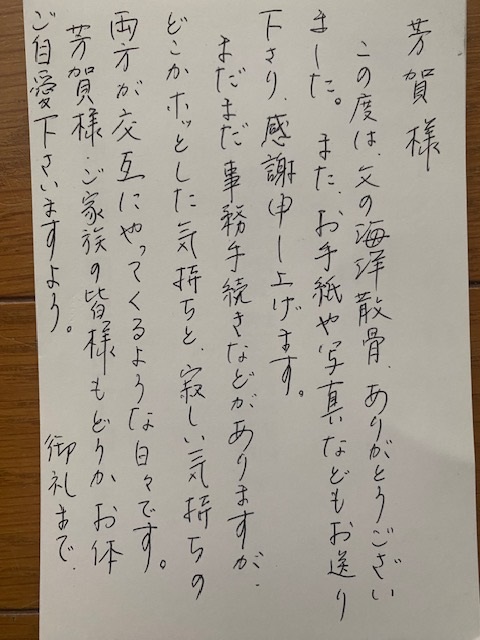 芳賀様
この度は、父の海洋散骨、ありがとうござい
ました。また、お手紙や写真などもお送り
下さり、感謝申し上げます。
まだまだ事務手続きなどがありますが、
どこかホッとした気持ちと、寂しい気持ちの
両方が交互にやってくるような日々です。
芳賀様・ご家族の皆様もどうかお体
ご自愛下さいますよう。
御礼まで、